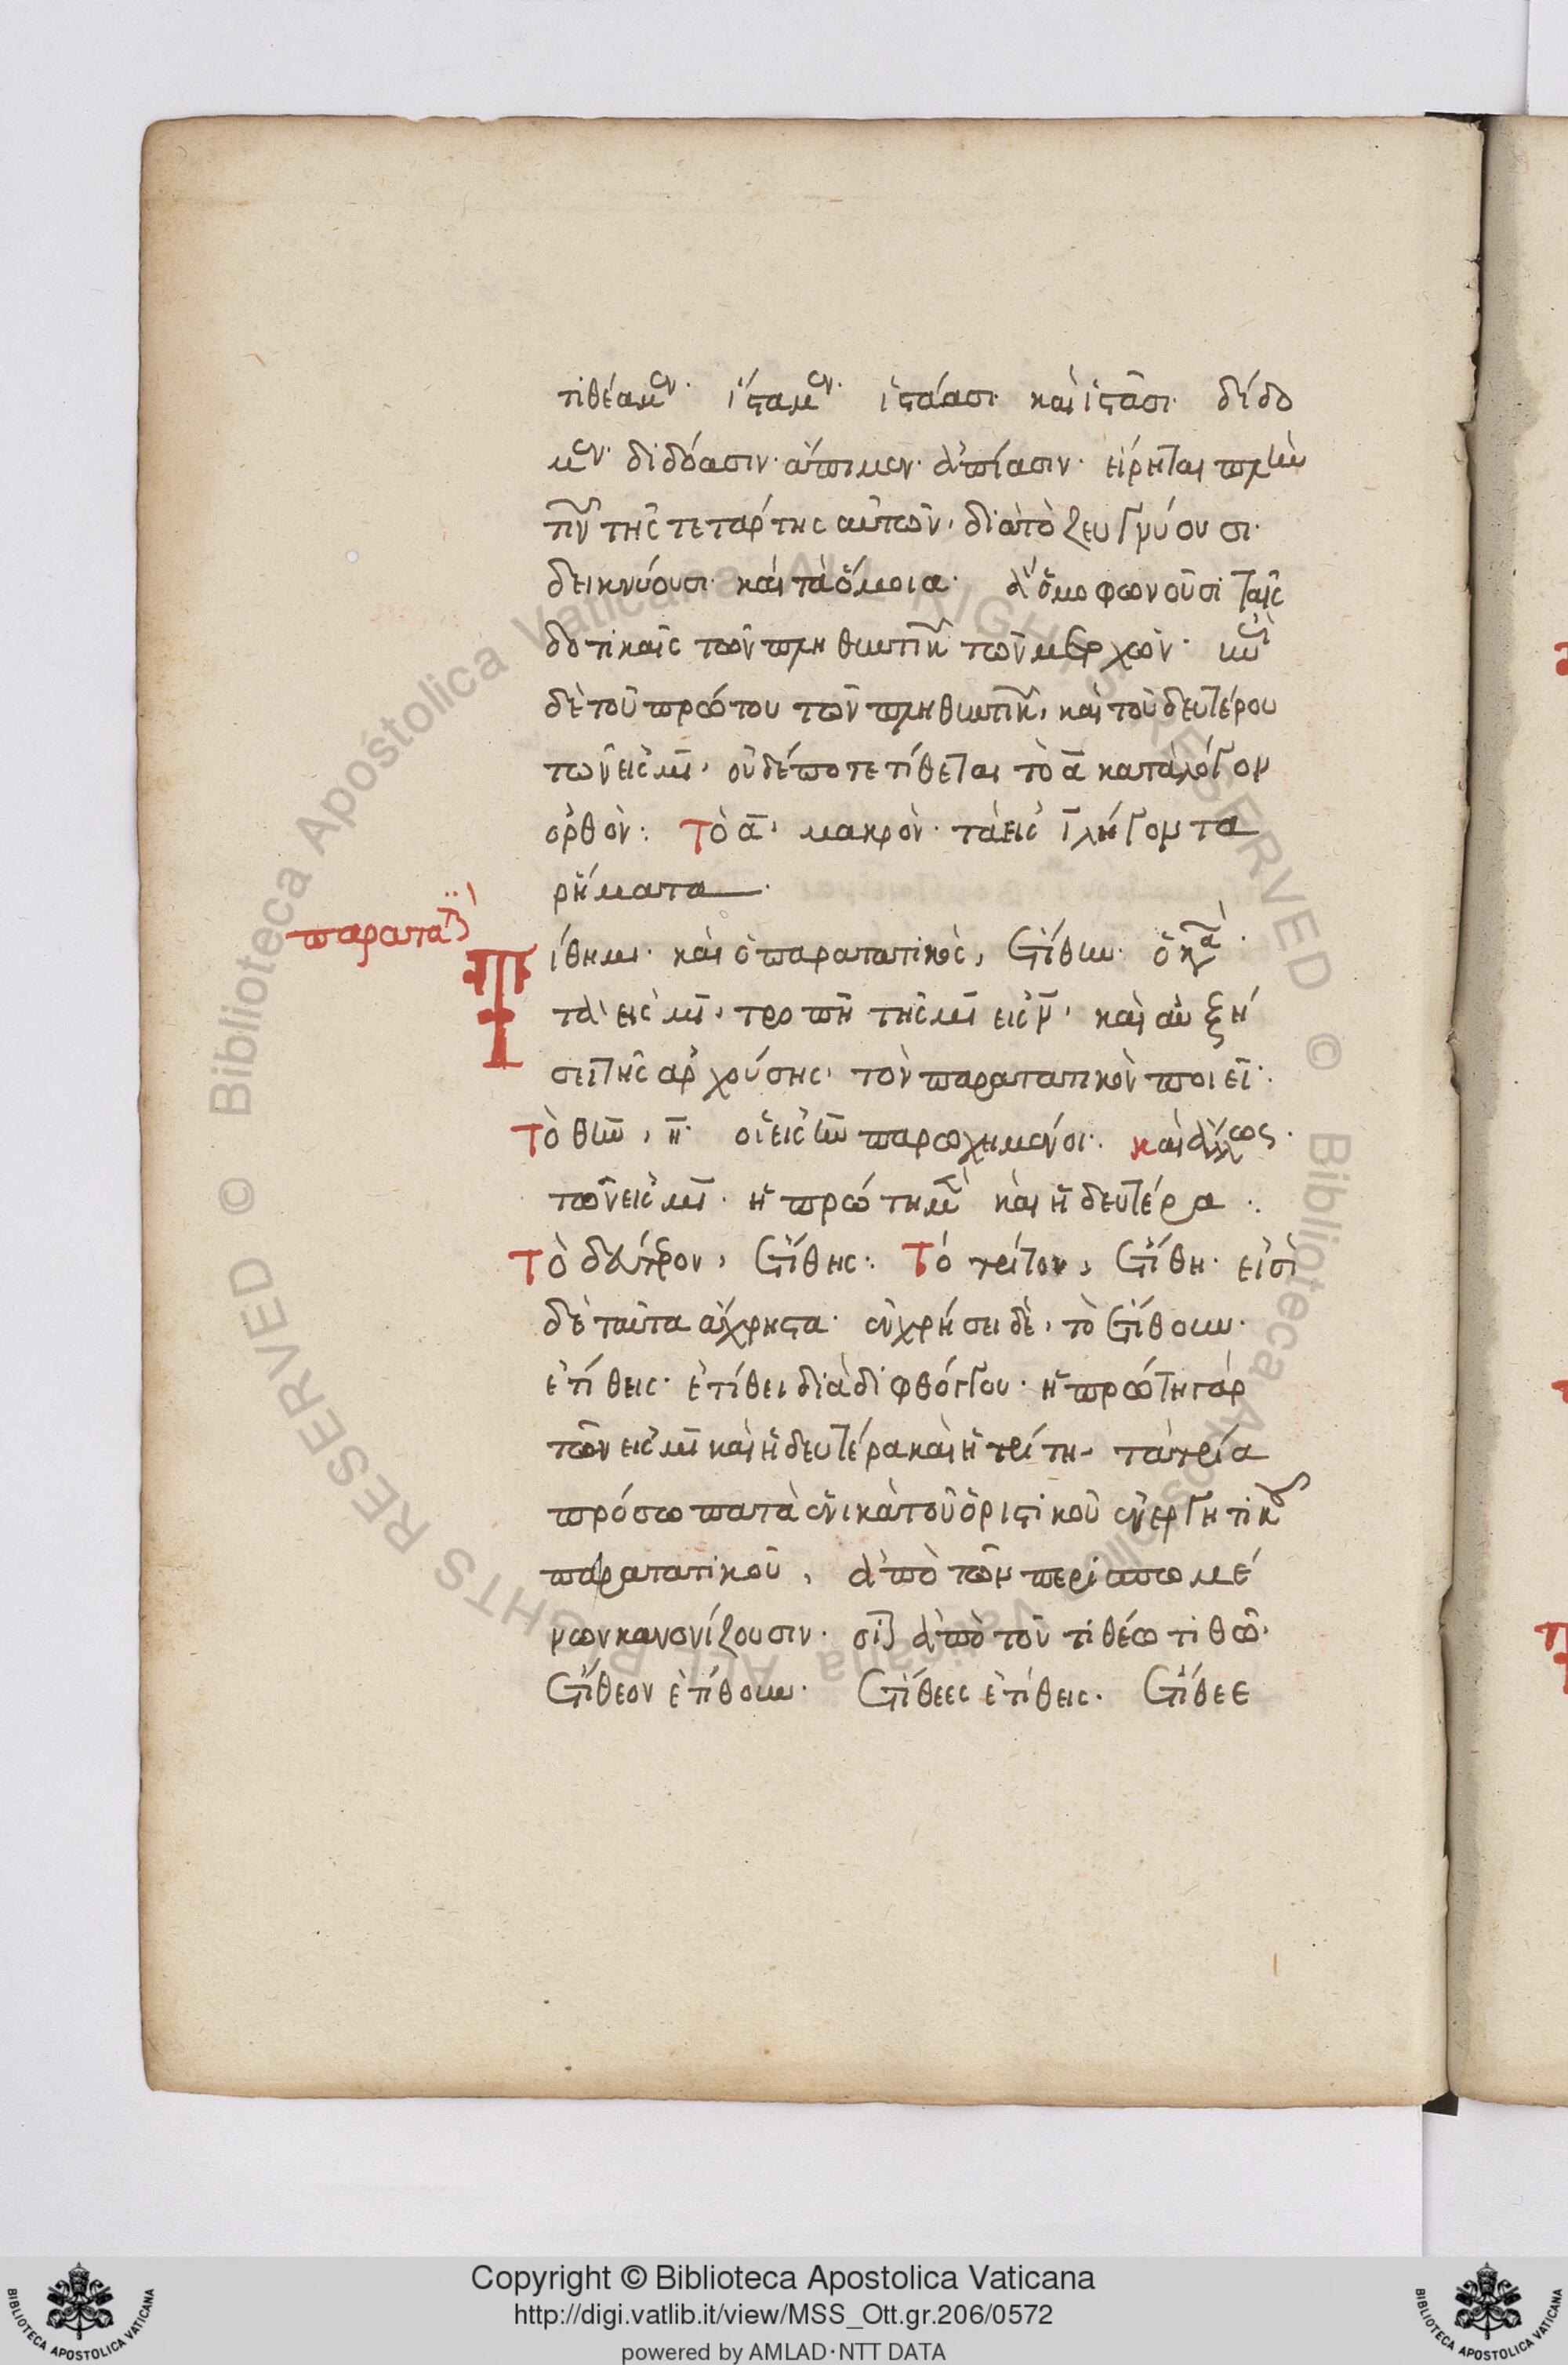 τιθέαμεν· ἵσταμεν· ἱστάασι· καὶ ἱστᾶσι· δίδο
μεν· διδόασιν· ἄπιμεν· ἀπίασιν· εἴρηται πλὴν
τῆς τετάρτης αὐτῶν, διὰ τὸ ζευγνύουσι·
δεικνύουσι· καὶ τὰ ὅμοια· ὁμοφωνοῦσι ταῖς
δοτικαῖς τῶν πληθυντικ τῶν μετοχῶν·
δὲ τοῦ πρώτου τῶν πληθυντικ, καὶ τοῦ δευτέρου
τῶν εἰς μι, οὐδέποτε τίθεται τὸ α κατὰ λόγον
ὀρθόν: Τὸ α, μακρὸν· τὰ εἰς ι λήγοντα
ῥήματα
παρατατ
Τίθημι· καὶ ὁ παρατατικὸς, ἐτίθην·
τὰ εἰς μι, τροπῇ τῆς μι εἰς ν, καὶ αὐξή
σει τῆς ἀρχούσης, τὸν παρατατικὸν ποιεῖ·
Τὸ θην, η· οἱ εἰς ην παρῳχημένοι· καὶ ἄλλως·
τῶν εἰς μι· ἡ πρώτη μετὰ καὶ ἡ δευτέρα:
Τὸ δεύτερον, ἐτίθης: Τὸ τρίτον, ἐτίθη· εἰσὶ
δὲ ταῦτα ἄχρηστα· ἐν χρήσει δὲ, τὸ ἐτίθουν·
ἐτίθεις· ἐτίθει διὰ διφθόγγου· ἡ πρώτη γὰρ
τῶν εἰς μι καὶ ἡ δευτέρα καὶ ἡ τρίτη, τὰ τρία
πρόσωπα τὰ ἑνικὰ τοῦ ὁριστικοῦ ἐνεργητικοῦ
παρατατικοῦ, ἀπὸ τῶν περισπωμέ
νων κανονίζουσιν· ἀπὸ τοῦ τιθέω τιθῶ·
ἐτίθεον ἐτίθουν· ἐτίθεες ἐτίθεις· ἐτίθεε
Copyright © Biblioteca Apostolica Vaticana
http://digi.vatlib.it/view/MSS_Ott.gr.206/0572
powered by AMLAD·NTT DATA
BIBLIOTECA APOSTOLICA VATICANA
BIBLIOTECA APOSTOLICA VATICANA
Biblioteca Apostolica Vaticana ALL RIGHTS RESERVED © Biblioteca Apostolica Vaticana ALL RIGHTS RESERVED ©